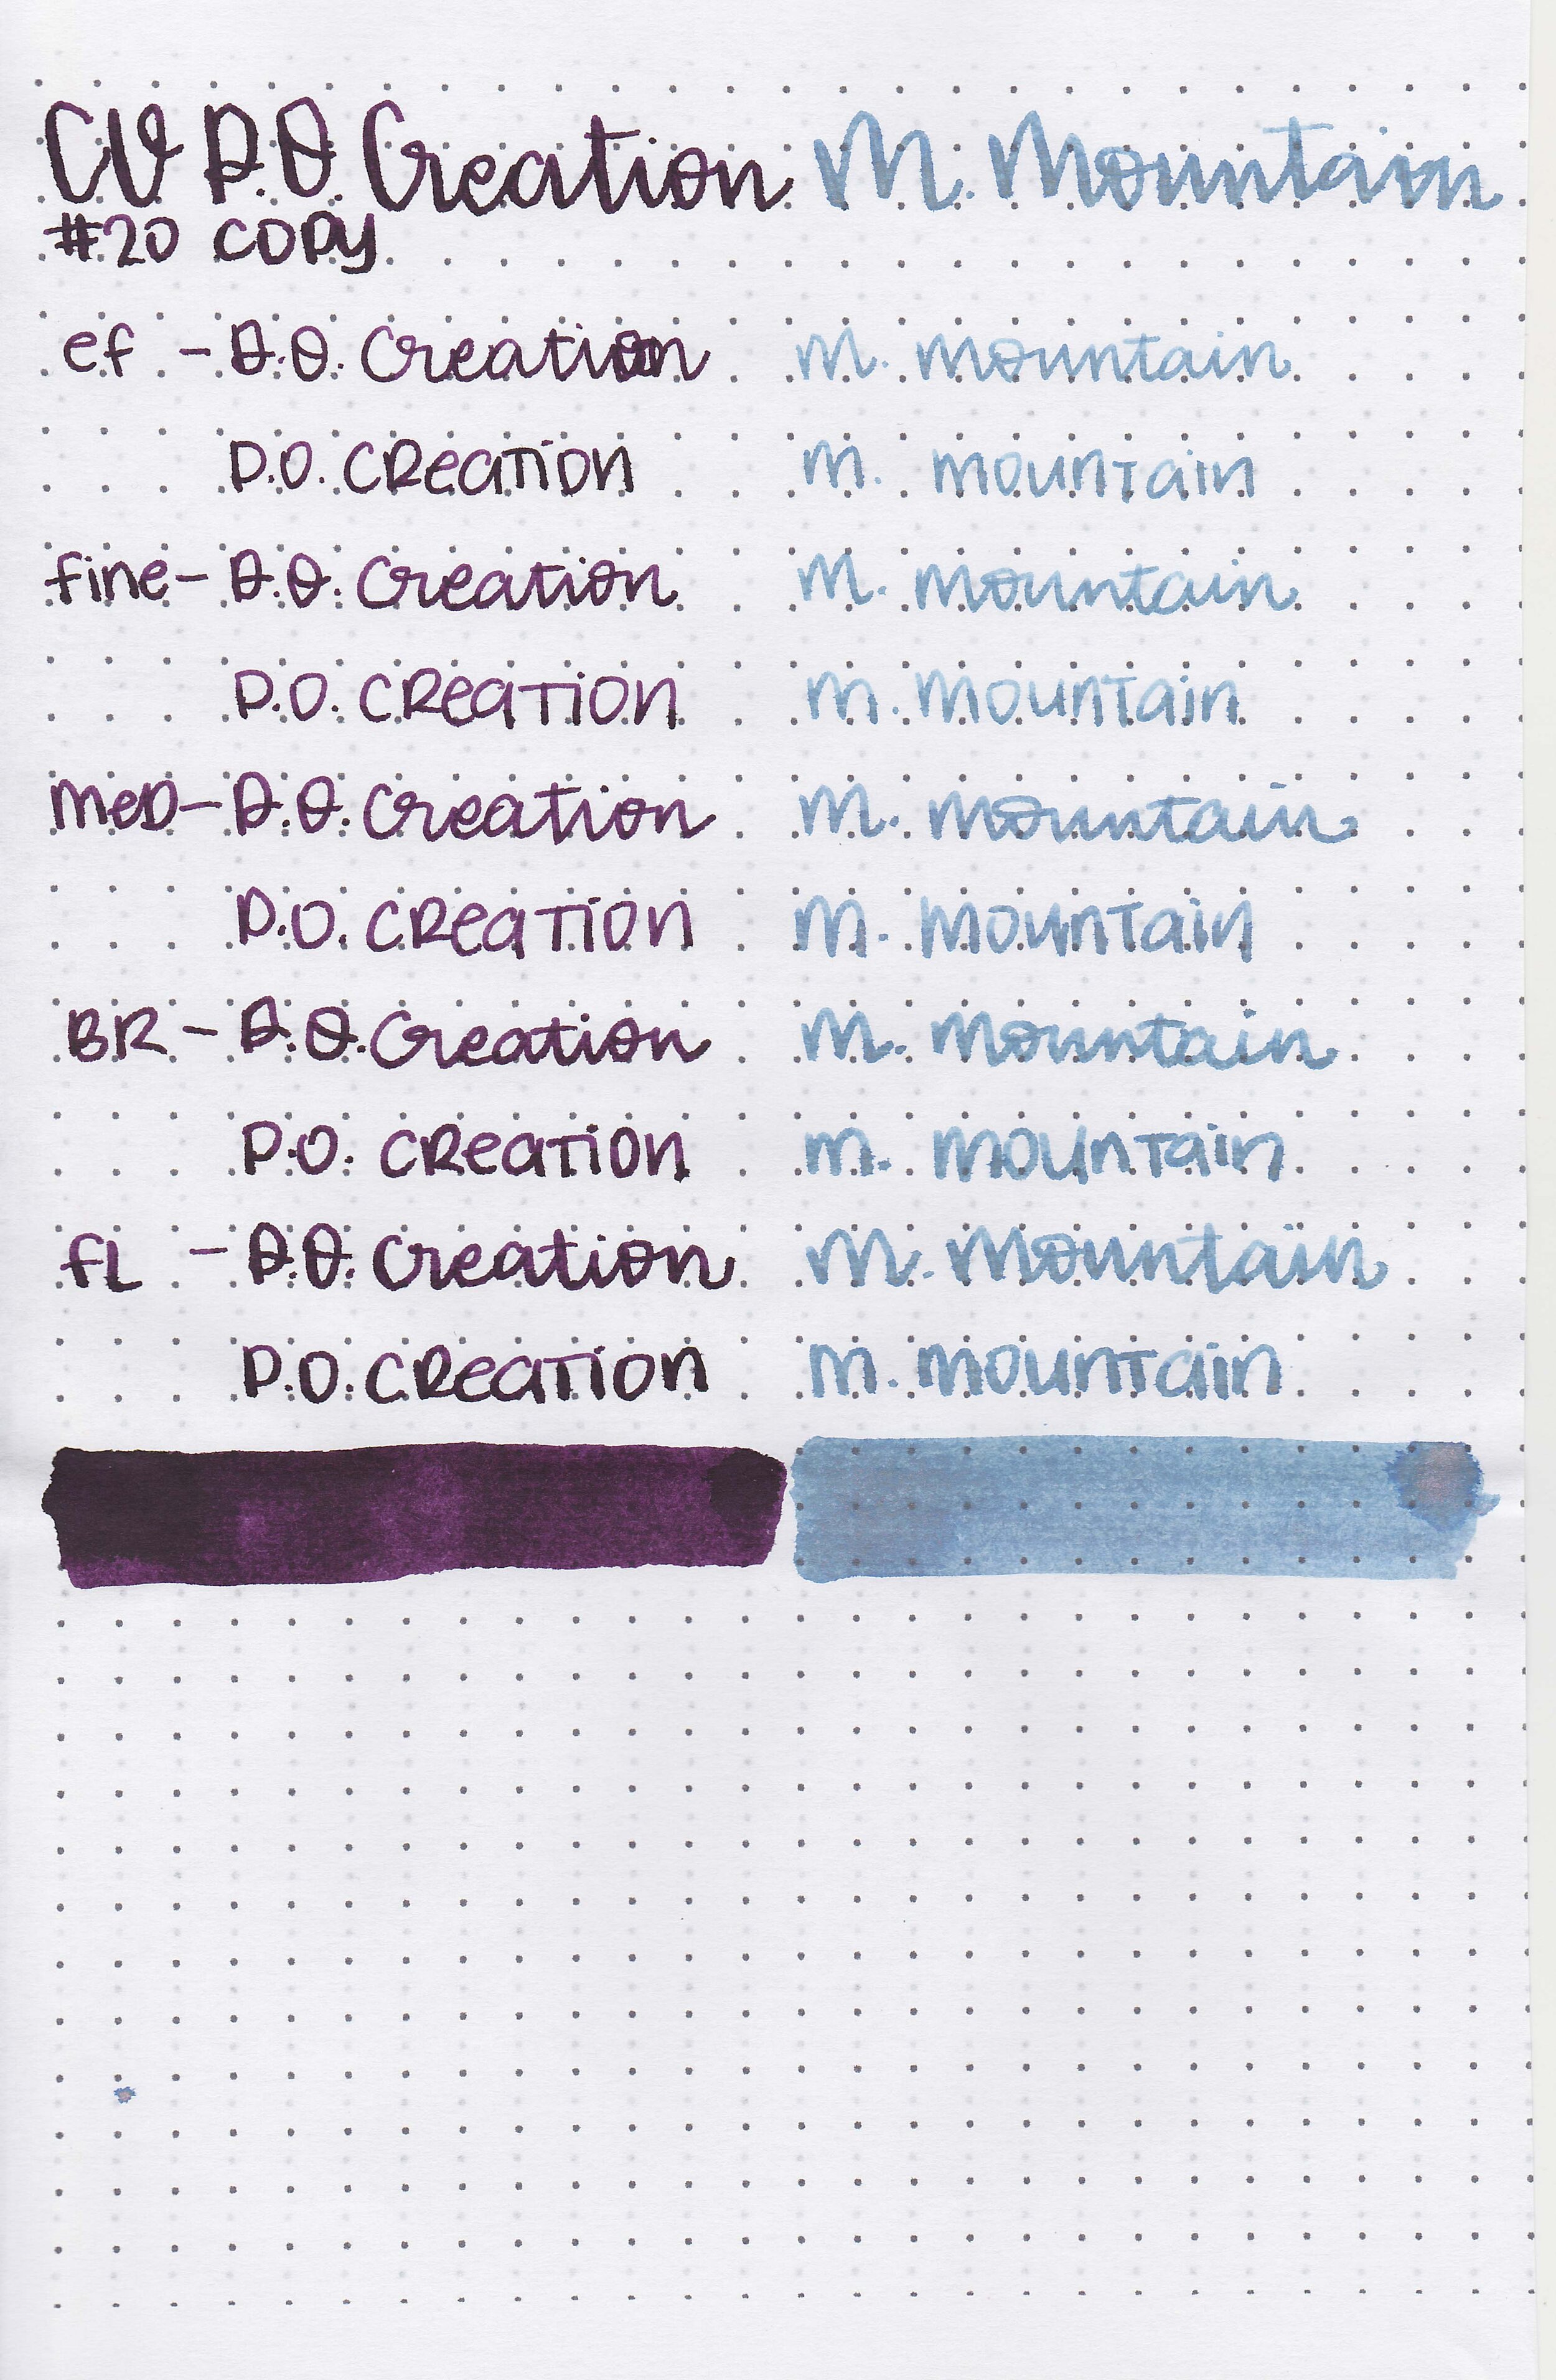 CV P.O. Creation M. Mountain
#20 COPY
ef - P.O. Creation M. Mountain
P.O. CReaTiON M. MOUNTain
fine - P.O. Creation M. Mountain
P.O. CReaTiON M. MOUNTain
MeD - P.O. Creation M. Mountain
P.O. CReaTiON M. MOUNTain
BR - P.O. Creation M. Mountain
P.O. CReaTiON M. MOUNTain
fL - P.O. Creation M. Mountain
P.O. CReaTiON M. MOUNTain